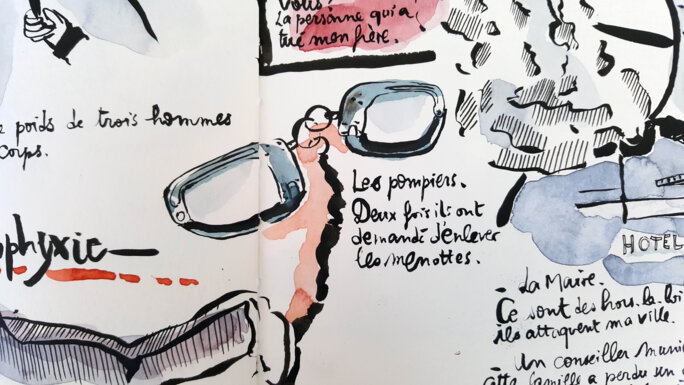 Vous!
La personne qui a
tué mon frère.
poids de trois hommes
corps.
Les pompiers.
Deux fois ils ont
demandé d'enlever
les menottes.
ophyxie
HOTEL
- La Maire.
Ce sont des hors la loi
ils attaquent ma ville.
- Un conseiller muni
famille a perdu un